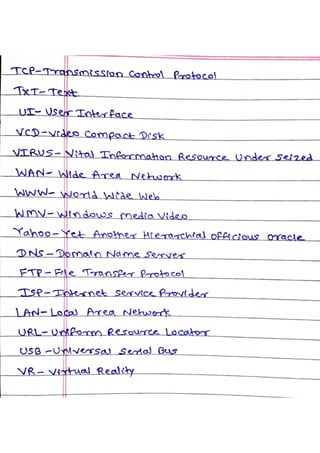 TCP-Transmission Control Protocol
TXT-Text
UI- User Interface
VCD-Video Compact Disk
VIRUS-Vital Information Resource Under Seized
WAN- Wide Area Network
WWW- World Wide Web
WMV-Windows Media Video
Yahoo-Yet Another Hierarchial Officious Oracle
DNS-Domain Name Server
FTP-File Transfer Protocol
ISP-Internet Service Provider
LAN-Local Area Network
URL-Uniform Resource Locator
USB-Universal Serial Bus
VR- Virtual Reality